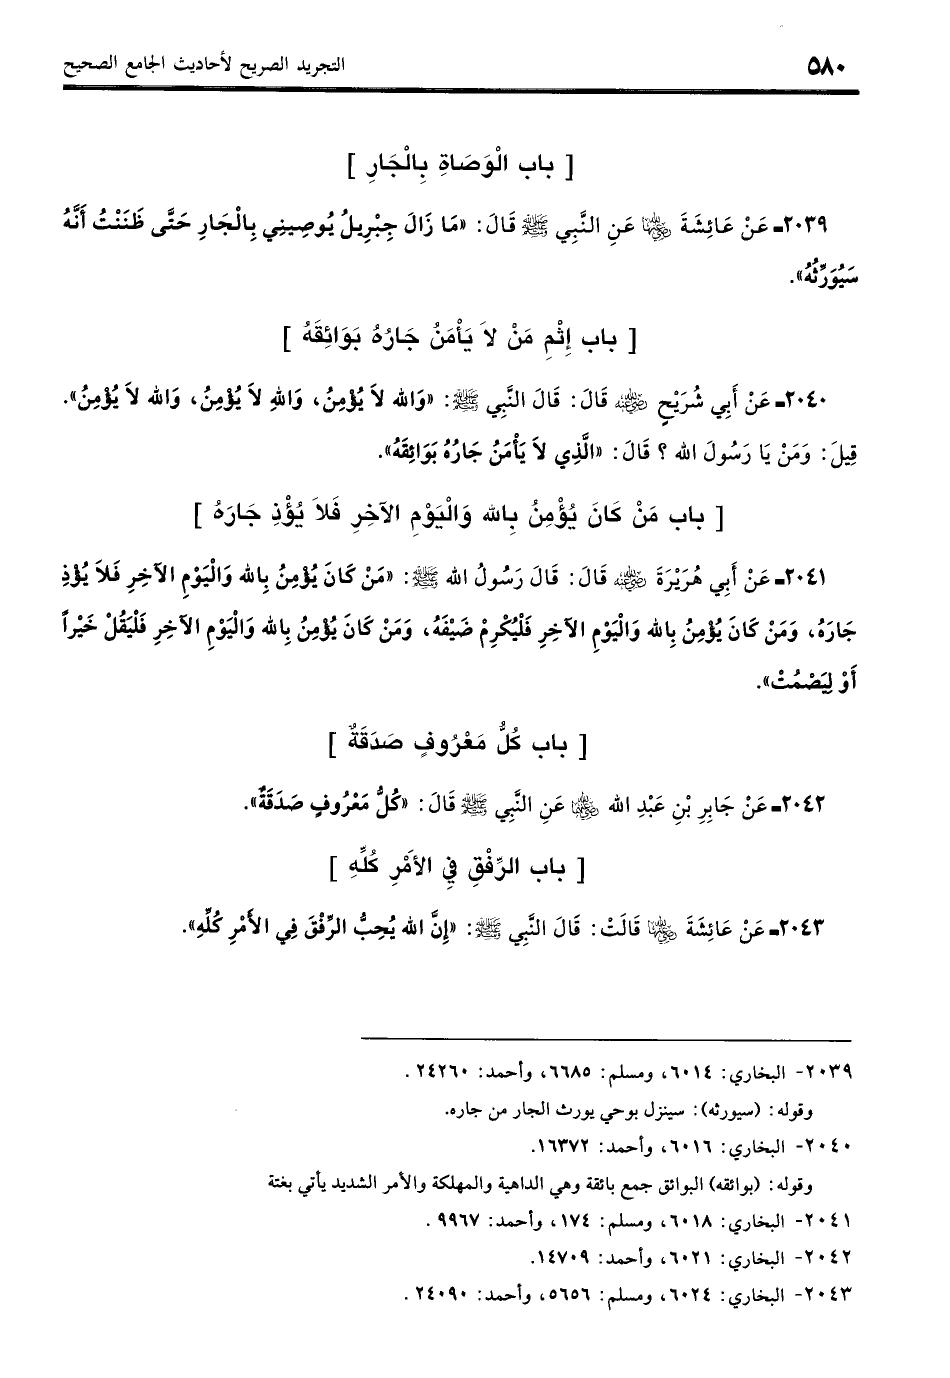 ٥٨٠ التجريد الصريح لأحاديث الجامع الصحيح
[ باب الْوَصَاةِ بِالْجَارِ ]
٢٠٣٩ـ عَنْ عَائِشَةَ رضي الله عنها عَنِ النَّبِي ﷺ قَالَ: «مَا زَالَ جِبْرِيلُ يُوصِينِي بِالْجَارِ حَتَّى ظَنَنْتُ أَنَّهُ
سَيُوَرِّثُهُ».
[ باب إِثْمِ مَنْ لاَ يَأْمَنُ جَارُهُ بَوَائِقَهُ ]
٢٠٤٠ـ عَنْ أَبِي شُرَيْحٍ رضي الله عنه قَالَ: قَالَ النَّبِي ﷺ: «وَالله لاَ يُؤْمِنُ، وَاللهِ لاَ يُؤْمِنُ، وَالله لاَ يُؤْمِنُ».
قِيلَ: وَمَنْ يَا رَسُولَ الله ؟ قَالَ: «الَّذِي لاَ يَأْمَنُ جَارُهُ بَوَائِقَهُ».
[ باب مَنْ كَانَ يُؤْمِنُ بِالله وَالْيَوْمِ الآخِرِ فَلاَ يُؤْذِ جَارَهُ ]
٢٠٤١ـ عَنْ أَبِي هُرَيْرَةَ رضي الله عنه قَالَ: قَالَ رَسُولُ الله ﷺ: «مَنْ كَانَ يُؤْمِنُ بِالله وَالْيَوْمِ الآخِرِ فَلاَ يُؤْذِ
جَارَهُ، وَمَنْ كَانَ يُؤْمِنُ بِالله وَالْيَوْمِ الآخِرِ فَلْيُكْرِمْ ضَيْفَهُ، وَمَنْ كَانَ يُؤْمِنُ بِالله وَالْيَوْمِ الآخِرِ فَلْيَقُلْ خَيْراً
أَوْ لِيَصْمُتْ».
[ باب كُلُّ مَعْرُوفٍ صَدَقَةٌ ]
٢٠٤٢ـ عَنْ جَابِرِ بْنِ عَبْدِ الله رضي الله عنهما عَنِ النَّبِي ﷺ قَالَ: «كُلُّ مَعْرُوفٍ صَدَقَةٌ».
[ باب الرِّفْقِ فِي الأَمْرِ كُلِّهِ ]
٢٠٤٣ـ عَنْ عَائِشَةَ رضي الله عنها قَالَتْ: قَالَ النَّبِي ﷺ: «إِنَّ الله يُحِبُّ الرِّفْقَ فِي الأَمْرِ كُلِّهِ».
٢٠٣٩- البخاري: ٦٠١٤، ومسلم: ٦٦٨٥، وأحمد: ٢٤٢٦٠ .
وقوله: (سيورثه): سينزل بوحي يورث الجار من جاره.
٢٠٤٠- البخاري: ٦٠١٦، وأحمد: ١٦٣٧٢.
وقوله: (بوائقه) البوائق جمع بائقة وهي الداهية والمهلكة والأمر الشديد يأتي بغتة
٢٠٤١- البخاري: ٦٠١٨، ومسلم: ١٧٤، وأحمد: ٩٩٦٧ .
٢٠٤٢- البخاري: ٦٠٢١، وأحمد: ١٤٧٠٩.
٢٠٤٣- البخاري: ٦٠٢٤، ومسلم: ٥٦٥٦، وأحمد: ٢٤٠٩٠ .